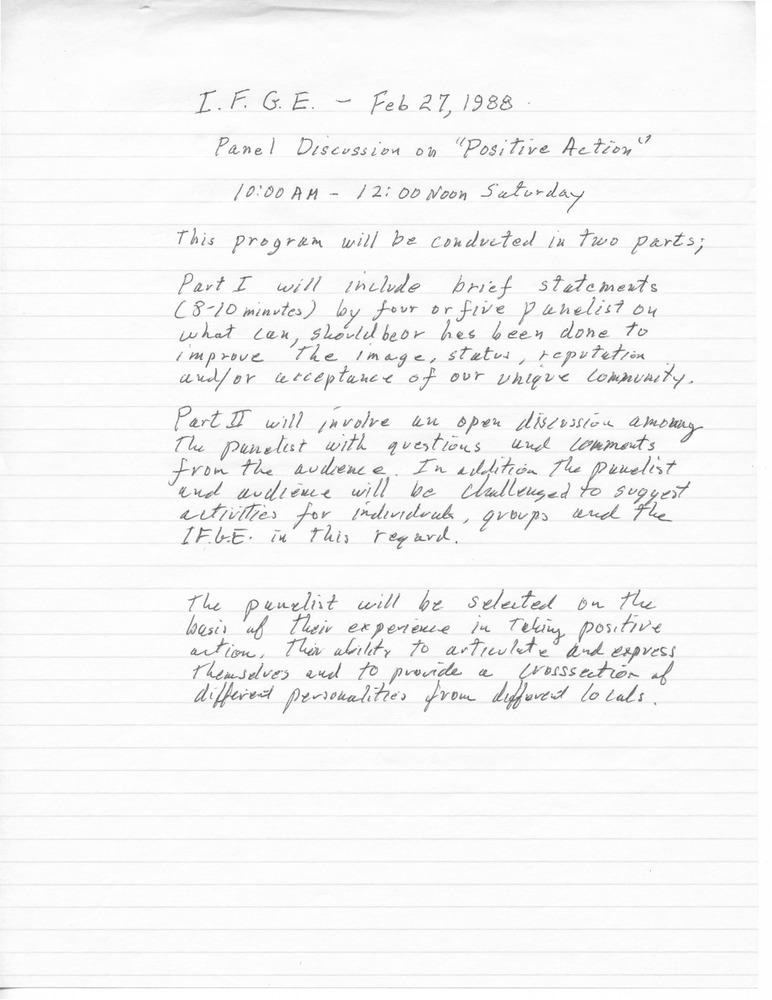 I. F. G. E. - Feb 27, 1988
Panel Discussion on "Positive Action"
10:00 AM - 12:00 Noon Saturday
This program will be conducted in two parts;
Part I will include brief statements
(8-10 minutes) by four or five panelist on
what can, should be or has been done to
improve the image, status, reputation
and/or acceptance of our unique community.
Part II will involve an open discussion amoung
The panelist with questions and comments
from the audience. In addition the panelist
and audience will be challenged to suggest
activities for individuals, groups and the
I.F.G.E. in this regard.
The panelist will be selected on the
basis of their experience in taking positive
action, their ability to articulate and express
themselves and to provide a crosssection of
different personalities from different locals.